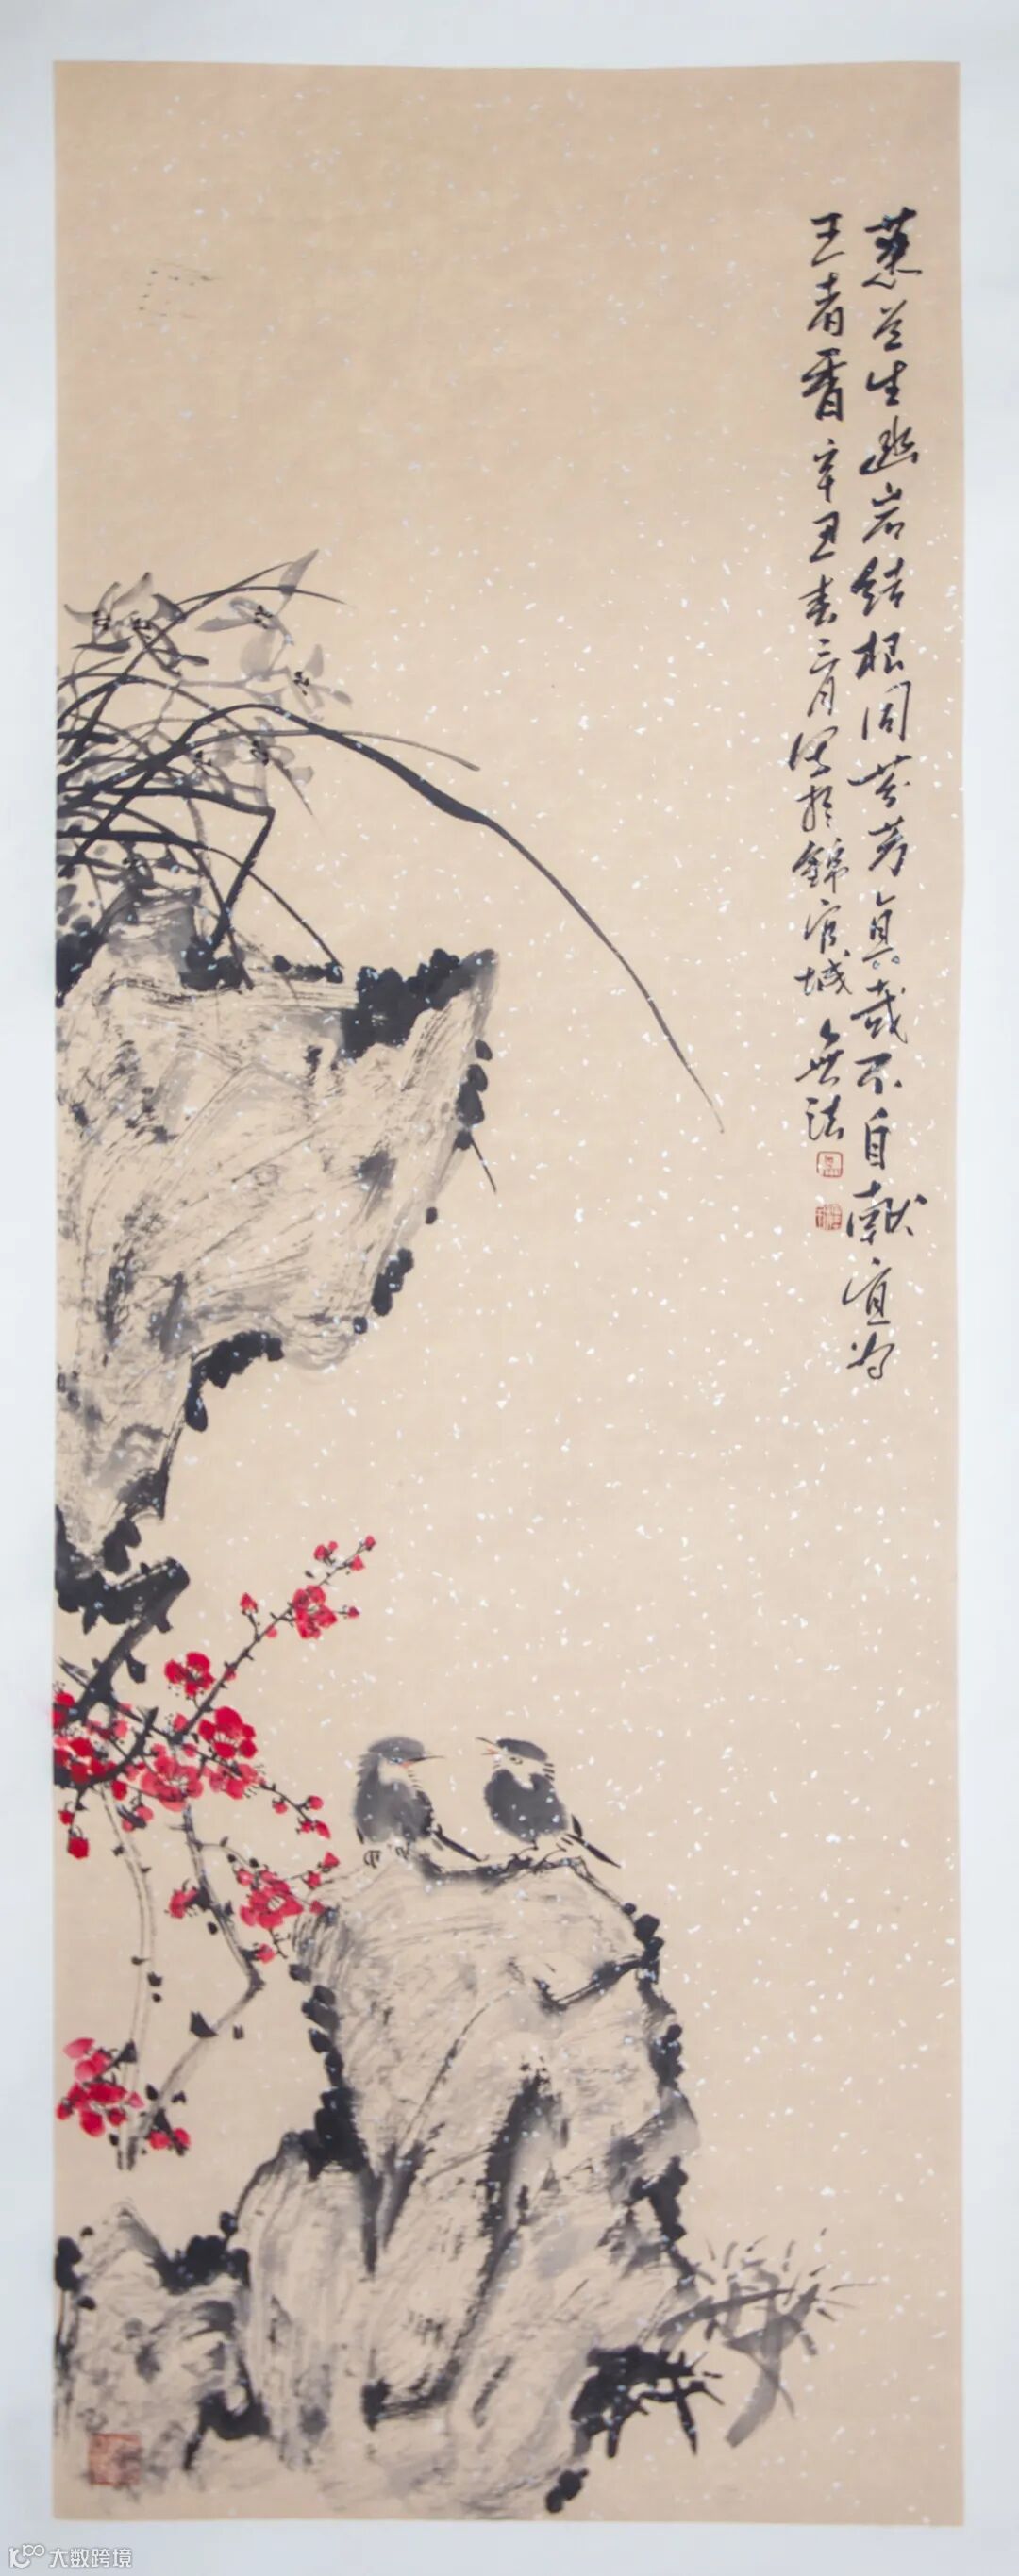 蕙兰生幽岩结根固芬芳真哉不自献宜为
王者香辛丑春三月写於錦官城無法
大数跨境